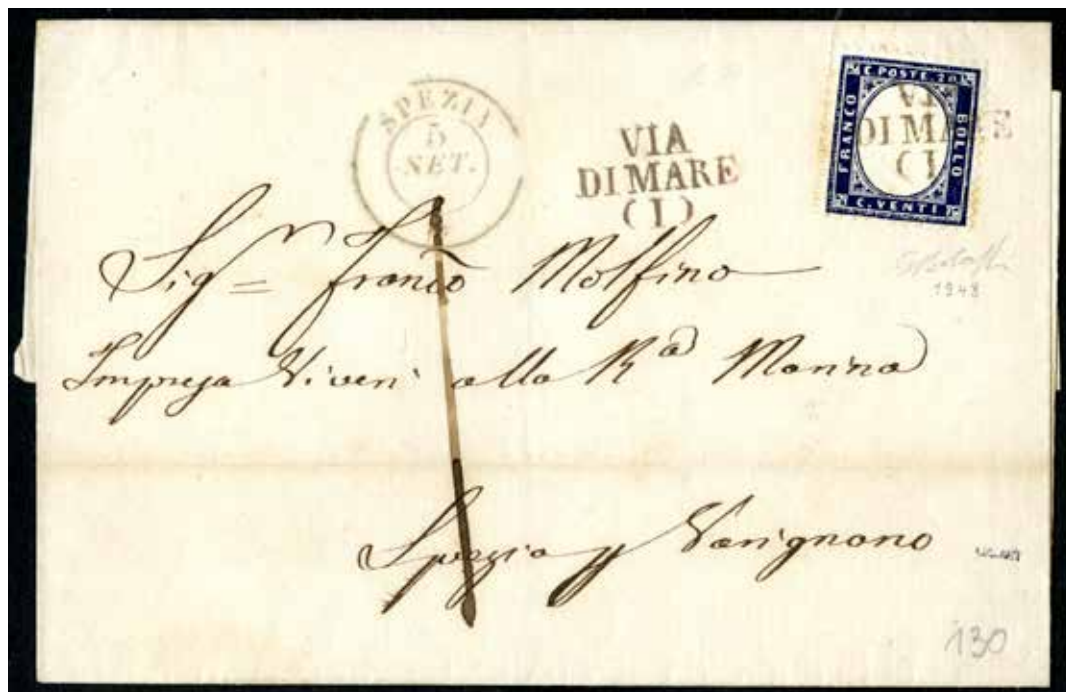 SPEZIA
5
SET.
VIA
DI MARE
(I)
C. POSTE. 20
FRANCO
BOLLO
C. VENTI
VIA
DI MARE
(I
Sig.r Franco Molfino
Impresa Viveri alla R.a Marina
Spezia Varignano
1948
130